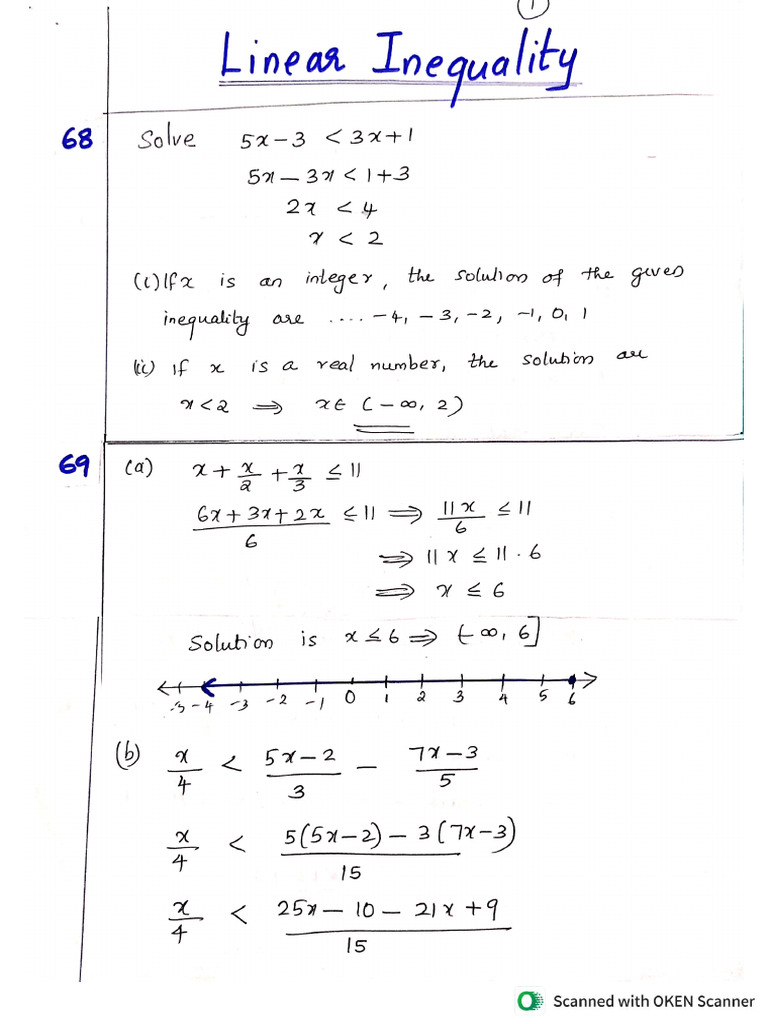 1
Linear Inequality
68 Solve 5x-3 < 3x+1
5x-3x < 1+3
2x < 4
x < 2
(i) If x is an integer, the solution of the given
inequality are ....-4, -3, -2, -1, 0, 1
(ii) if x is a real number, the solution are
x<2 ⟹ x∈ (-∞, 2)
69 (a) x + x/2 + x/3 ≤ 11
(6x+3x+2x)/6 ≤ 11 ⟹ 11x/6 ≤ 11
⟹ 11x ≤ 11.6
⟹ x ≤ 6
Solution is x≤6 ⟹ (-∞, 6]
-5 -4 -3 -2 -1 0 1 2 3 4 5 6
(b) x/4 < (5x-2)/3 - (7x-3)/5
x/4 < (5(5x-2) - 3(7x-3))/15
x/4 < (25x-10-21x+9)/15
Scanned with OKEN Scanner